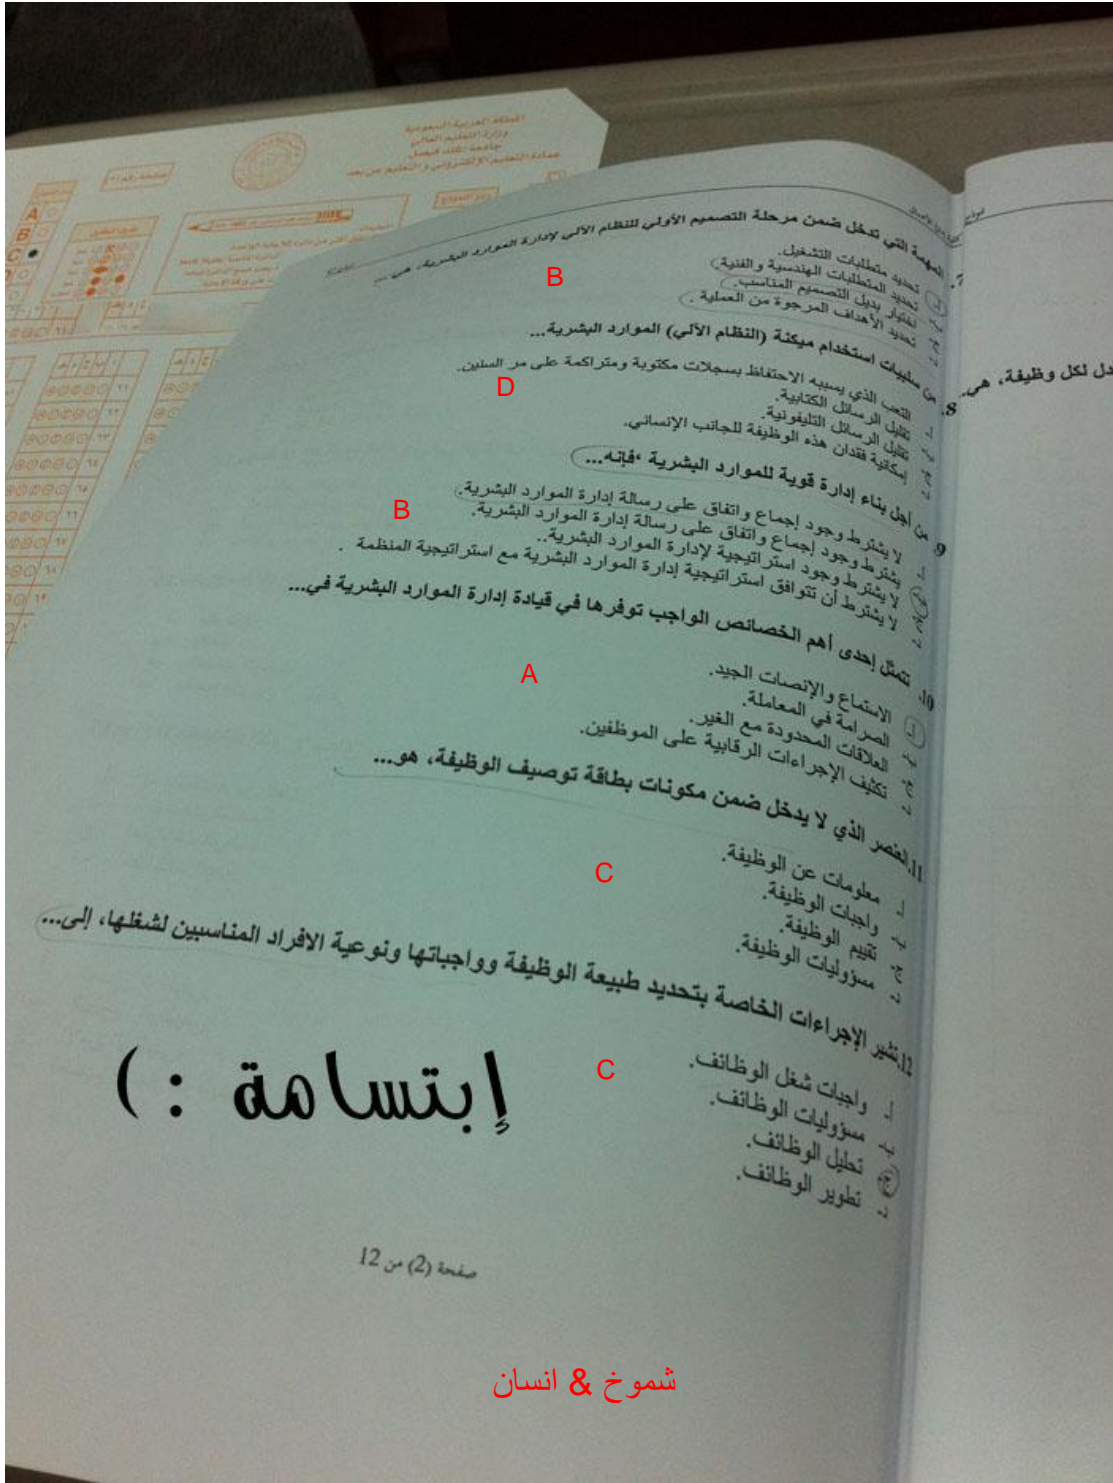 المملكة العربية السعودية
وزارة التعليم العالي
جامعة الملك فيصل
عمادة التعليم الإلكتروني والتعليم عن بعد
7. المهمة التي تدخل ضمن مرحلة التصميم الأولي للنظام الآلي لإدارة الموارد البشرية، هي...
أ. تحديد متطلبات التشغيل.
ب. تحديد المتطلبات الهندسية والفنية.
ج. اختيار بديل التصميم المناسب.
د. تحديد الأهداف المرجوة من العملية.
B
8. من سلبيات استخدام ميكنة (النظام الآلي) الموارد البشرية...
أ. التعب الذي يسببه الاحتفاظ بسجلات مكتوبة ومتراكمة على مر السنين.
ب. تقليل الرسائل الكتابية.
ج. تقليل الرسائل التليفونية.
د. إمكانية فقدان هذه الوظيفة للجانب الإنساني.
D
9. من أجل بناء إدارة قوية للموارد البشرية ،فإنه...
أ. لا يشترط وجود إجماع واتفاق على رسالة إدارة الموارد البشرية.
ب. يشترط وجود إجماع واتفاق على رسالة إدارة الموارد البشرية.
ج. لا يشترط وجود استراتيجية لإدارة الموارد البشرية..
د. لا يشترط أن تتوافق استراتيجية إدارة الموارد البشرية مع استراتيجية المنظمة .
B
10. تتمثل إحدى أهم الخصائص الواجب توفرها في قيادة إدارة الموارد البشرية في...
أ. الاستماع والإنصات الجيد.
ب. الصرامة في المعاملة.
ج. العلاقات المحدودة مع الغير.
د. تكثيف الإجراءات الرقابية على الموظفين.
A
11. العنصر الذي لا يدخل ضمن مكونات بطاقة توصيف الوظيفة، هو...
أ. معلومات عن الوظيفة.
ب. واجبات الوظيفة.
ج. تقييم الوظيفة.
د. مسؤوليات الوظيفة.
C
12. تشير الإجراءات الخاصة بتحديد طبيعة الوظيفة وواجباتها ونوعية الافراد المناسبين لشغلها، إلى...
أ. واجبات شغل الوظائف.
ب. مسؤوليات الوظائف.
ج. تحليل الوظائف.
د. تطوير الوظائف.
C
إبتسامة : )
صفحة (2) من 12
شموخ & انسان
دل لكل وظيفة، هي..